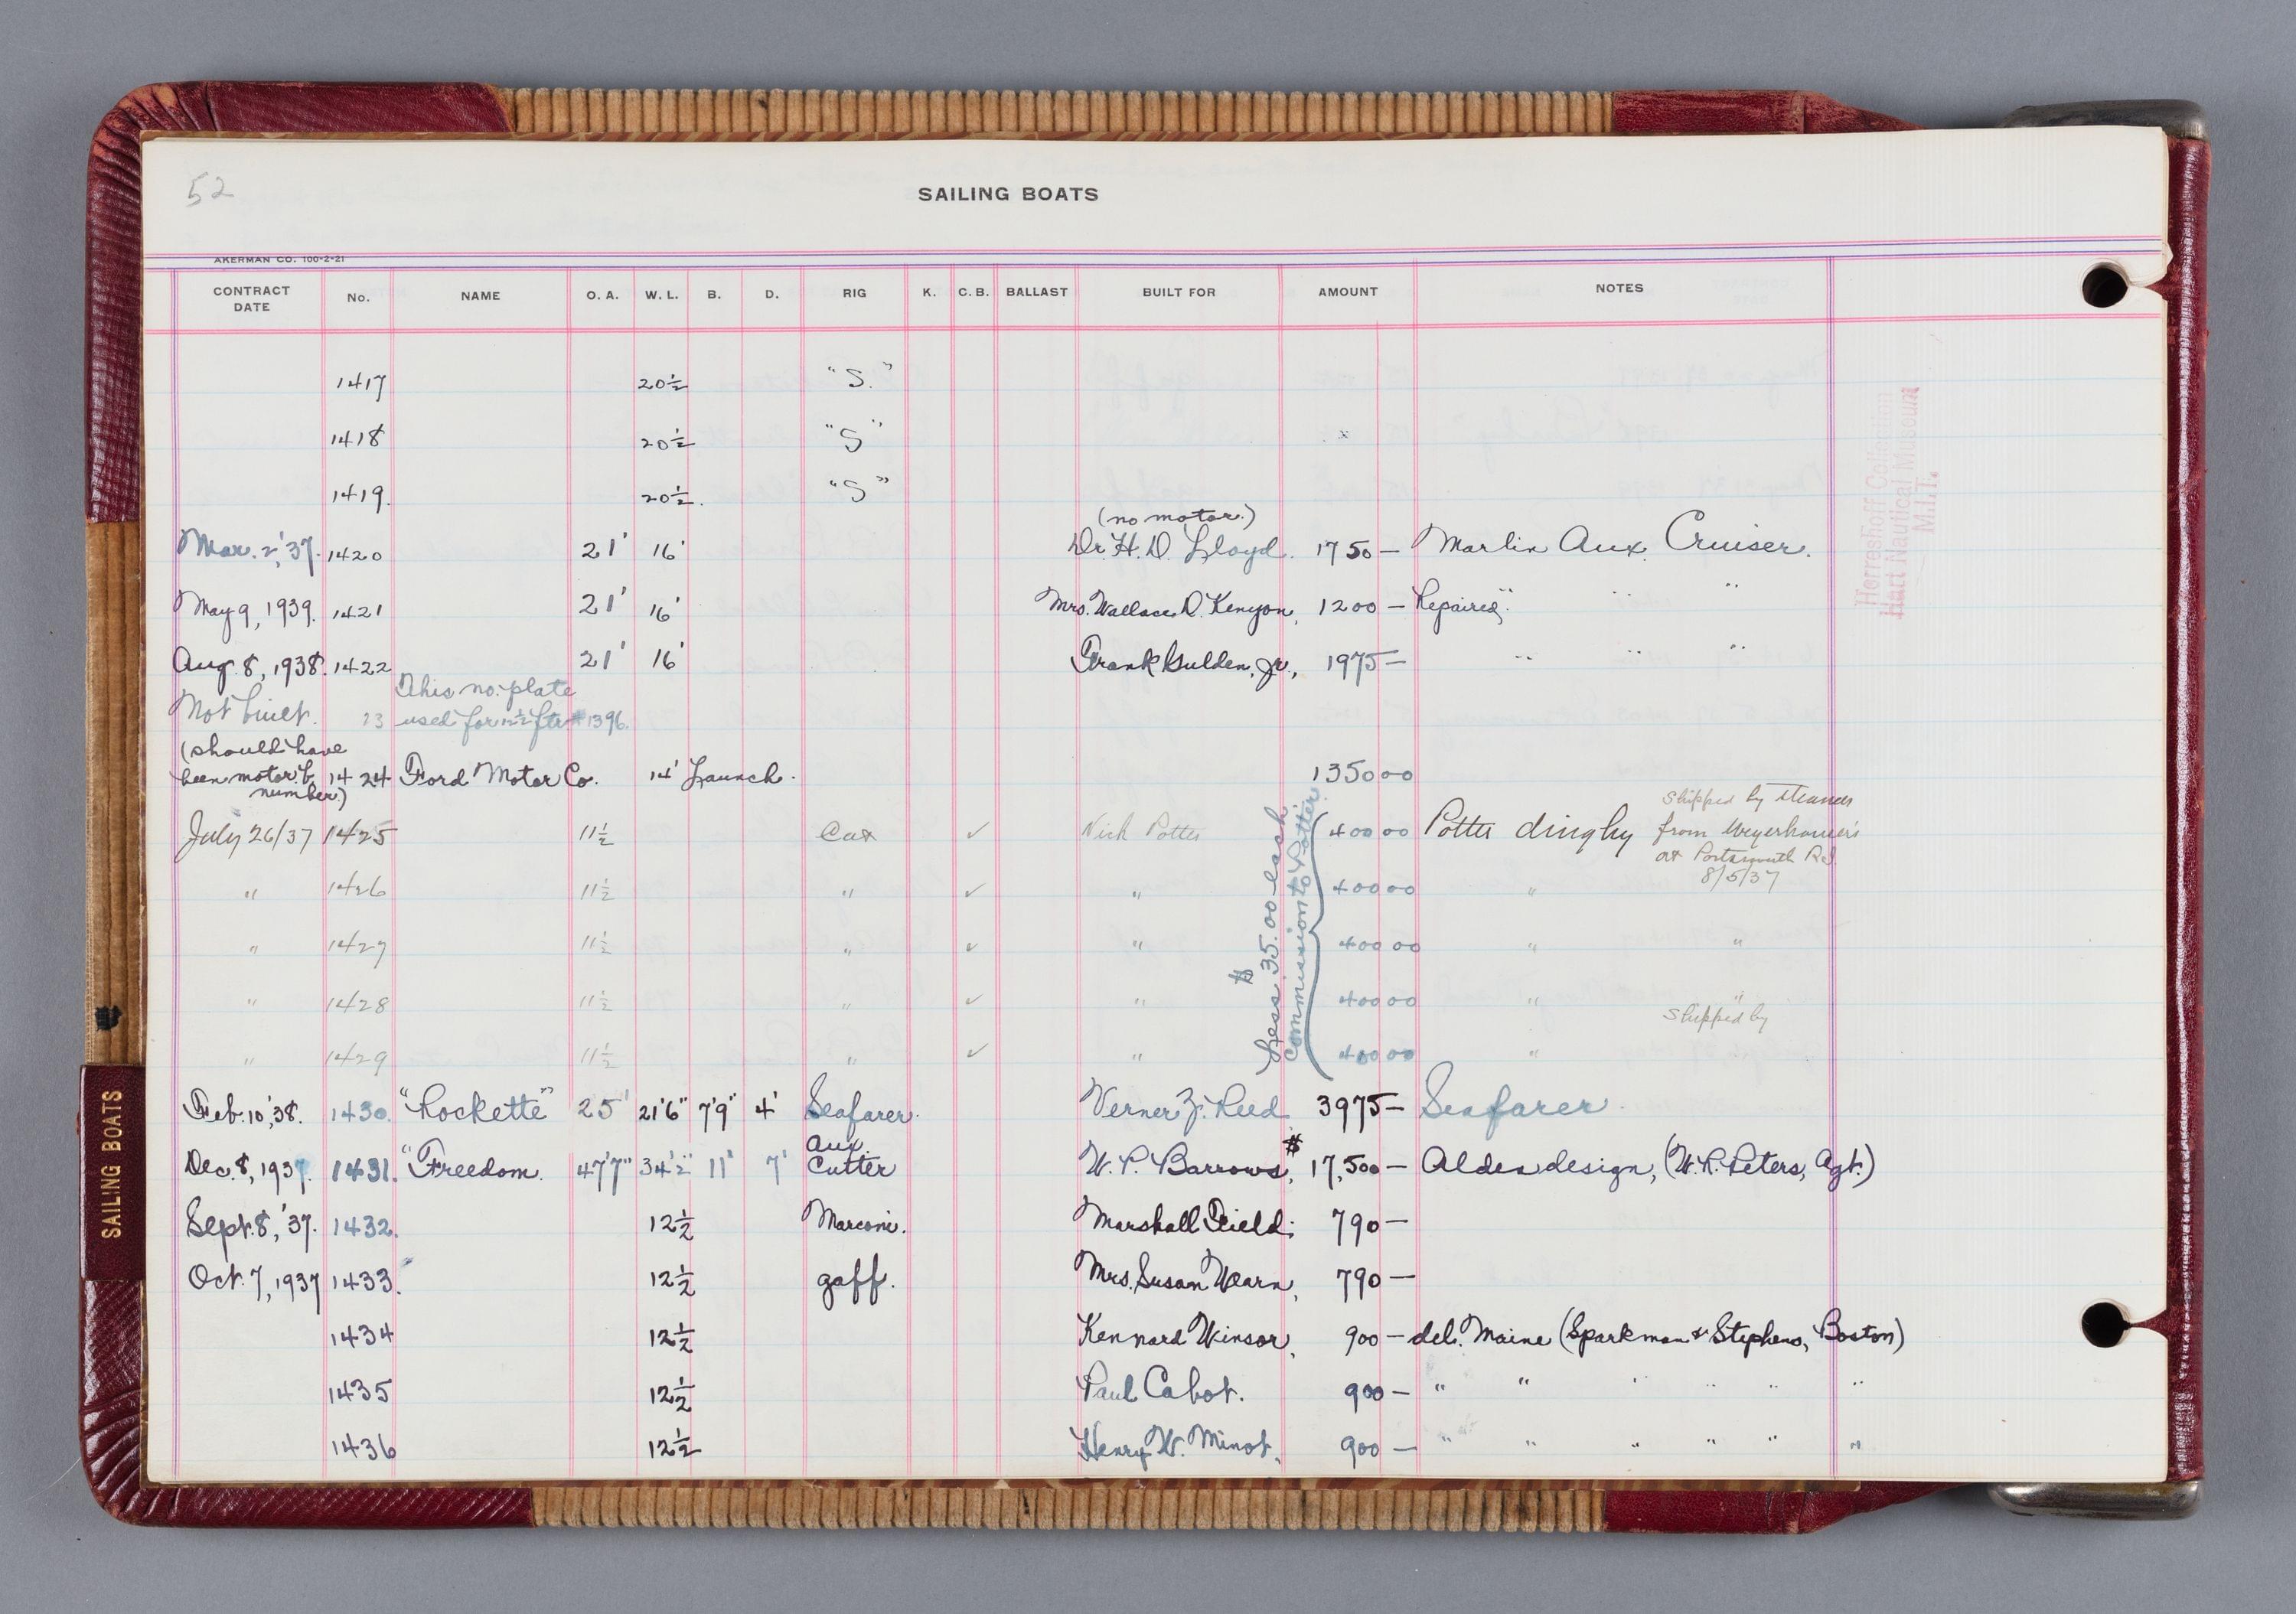 52
SAILING BOATS
AKERMAN CO. 100-2-21
CONTRACT DATE No. NAME O. A. W. L. B. D. RIG K. C. B. BALLAST BUILT FOR AMOUNT NOTES
1417 20½ "S."
1418 20½ "S"
1419. 20½. "S"
(no motor.)
Mar. 2, '37. 1420 21' 16' Dr. H. D. Lloyd. 1750 — Marlin Aux. Cruiser.
May 9, 1939. 1421 21' 16' Mrs. Wallace D. Kenyon, 1200 — Repaired, " " "
Aug. 8, 1938. 1422 21' 16' Frank Gulden, Jr., 1975 — " " "
This no. plate
Not built. 23 used for 12½ ftr # 1396.
(should have
been motor b. 1424 Ford Motor Co. 14' Launch. 1350 00
number)
Shipped by
July 26/37 1425 11½ Cat ✓ Nick Potter 400 00 Potter dinghy from Weyerhauser's
at Portsmouth R.I.
8/5/37
" 1426 11½ " ✓ " 400 00 "
" 1427 11½ " ✓ " 400 00 " "
" 1428 11½ " ✓ " 400 00 " "
Shipped by
" 1429 11½ " ✓ " 400 00 "
Less $35.00 each
commission to Potter
Feb. 10, '38. 1430. "Rockette" 25' 21'6" 7'9" 4' Seafarer. Verner Z. Reed 3975 — Seafarer.
Aux.
Dec. 8, 1937. 1431. "Freedom. 47'7" 34'2" 11' 7' Cutter W. P. Barrows, $17,500 — Alden design, (W. R. Peters, Agt.)
Sept. 8, '37. 1432. 12½ Marconi. Marshall Field. 790 —
Oct. 7, 1937 1433. 12½ gaff. Mrs. Susan Wearn, 790 —
1434 12½ Kennard Winsor, 900 — del. Maine (Sparkman & Stephens, Boston)
1435 12½ Paul Cabot. 900 — " " " " " "
1436 12½ Henry W. Minot. 900 — " " " " " "
Herreshoff Collection
Hart Nautical Museum
M.I.T.
SAILING BOATS